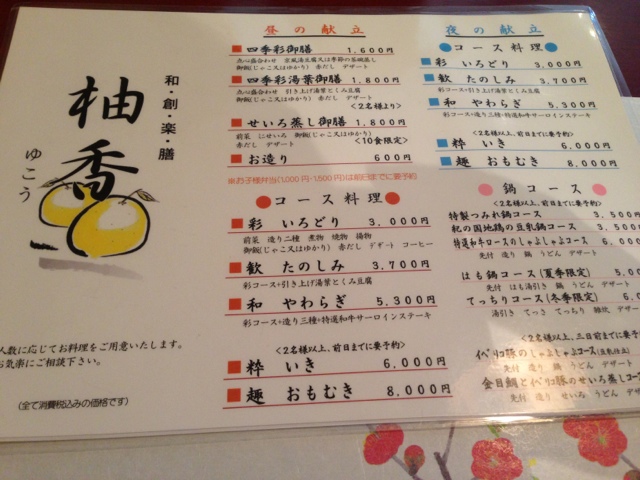 和・創・楽・膳
柚香
ゆこう
人数に応じてお料理をご用意いたします。
お気楽にご相談下さい。
(全て消費税込みの価格です)
昼の献立
四季彩御膳 1,600円
点心盛合わせ 京風湯豆腐又は季節の茶碗蒸し
御飯(じゃこ又はゆかり) 赤だし デザート
四季彩湯葉御膳 1,800円
点心盛合わせ 引き上げ湯葉とくみ豆腐
御飯(じゃこ又はゆかり) 赤だし デザート
<2名様より>
せいろ蒸し御膳 1,800円
前菜 にせいろ 御飯(じゃこ又はゆかり)
赤だし デザート <10食限定>
お造り 600円
※お子様弁当(1,000円・1,500円)は前日までに要予約
コース料理
彩 いろどり 3,000円
前菜 造り二種 煮物 焼物 揚物
御飯(じゃこ又はゆかり) 赤だし デザート コーヒー
歓 たのしみ 3,700円
彩コース+引き上げ湯葉とくみ豆腐
和 やわらぎ 5,300円
彩コース+造り三種+特選和牛サーロインステーキ
<2名様以上、前日までに要予約>
粋 いき 6,000円
趣 おもむき 8,000円
夜の献立
コース料理
彩 いろどり 3,000円
歓 たのしみ 3,700円
彩コース+引き上げ湯葉とくみ豆腐
和 やわらぎ 5,300円
彩コース+造り三種+特選和牛サーロインステーキ
<2名様以上、前日までに要予約>
粋 いき 6,000円
趣 おもむき 8,000円
鍋コース
<2名様以上、前日までに要予約>
特製つみれ鍋コース 3,500円
紀の国地鶏の豆乳鍋コース 3,500
特選和牛ロースのしゃぶしゃぶコース 6,0
先付 造り 鍋 うどん デザート
はも鍋コース(夏季限定) 5,00
先付 はも湯引き 鍋 うどん デザー
てっちりコース(冬季限定) 6,
湯引き てっさ てっちり 雑炊 デザ
<2名様以上、三日前までに要予約>
イベリコ豚のしゃぶしゃぶコース(豆乳仕立)
先付 造り 鍋 うどん デザー
金目鯛とイベリコ豚のせいろ蒸しコー
先付 造り せいろ うどん デザ